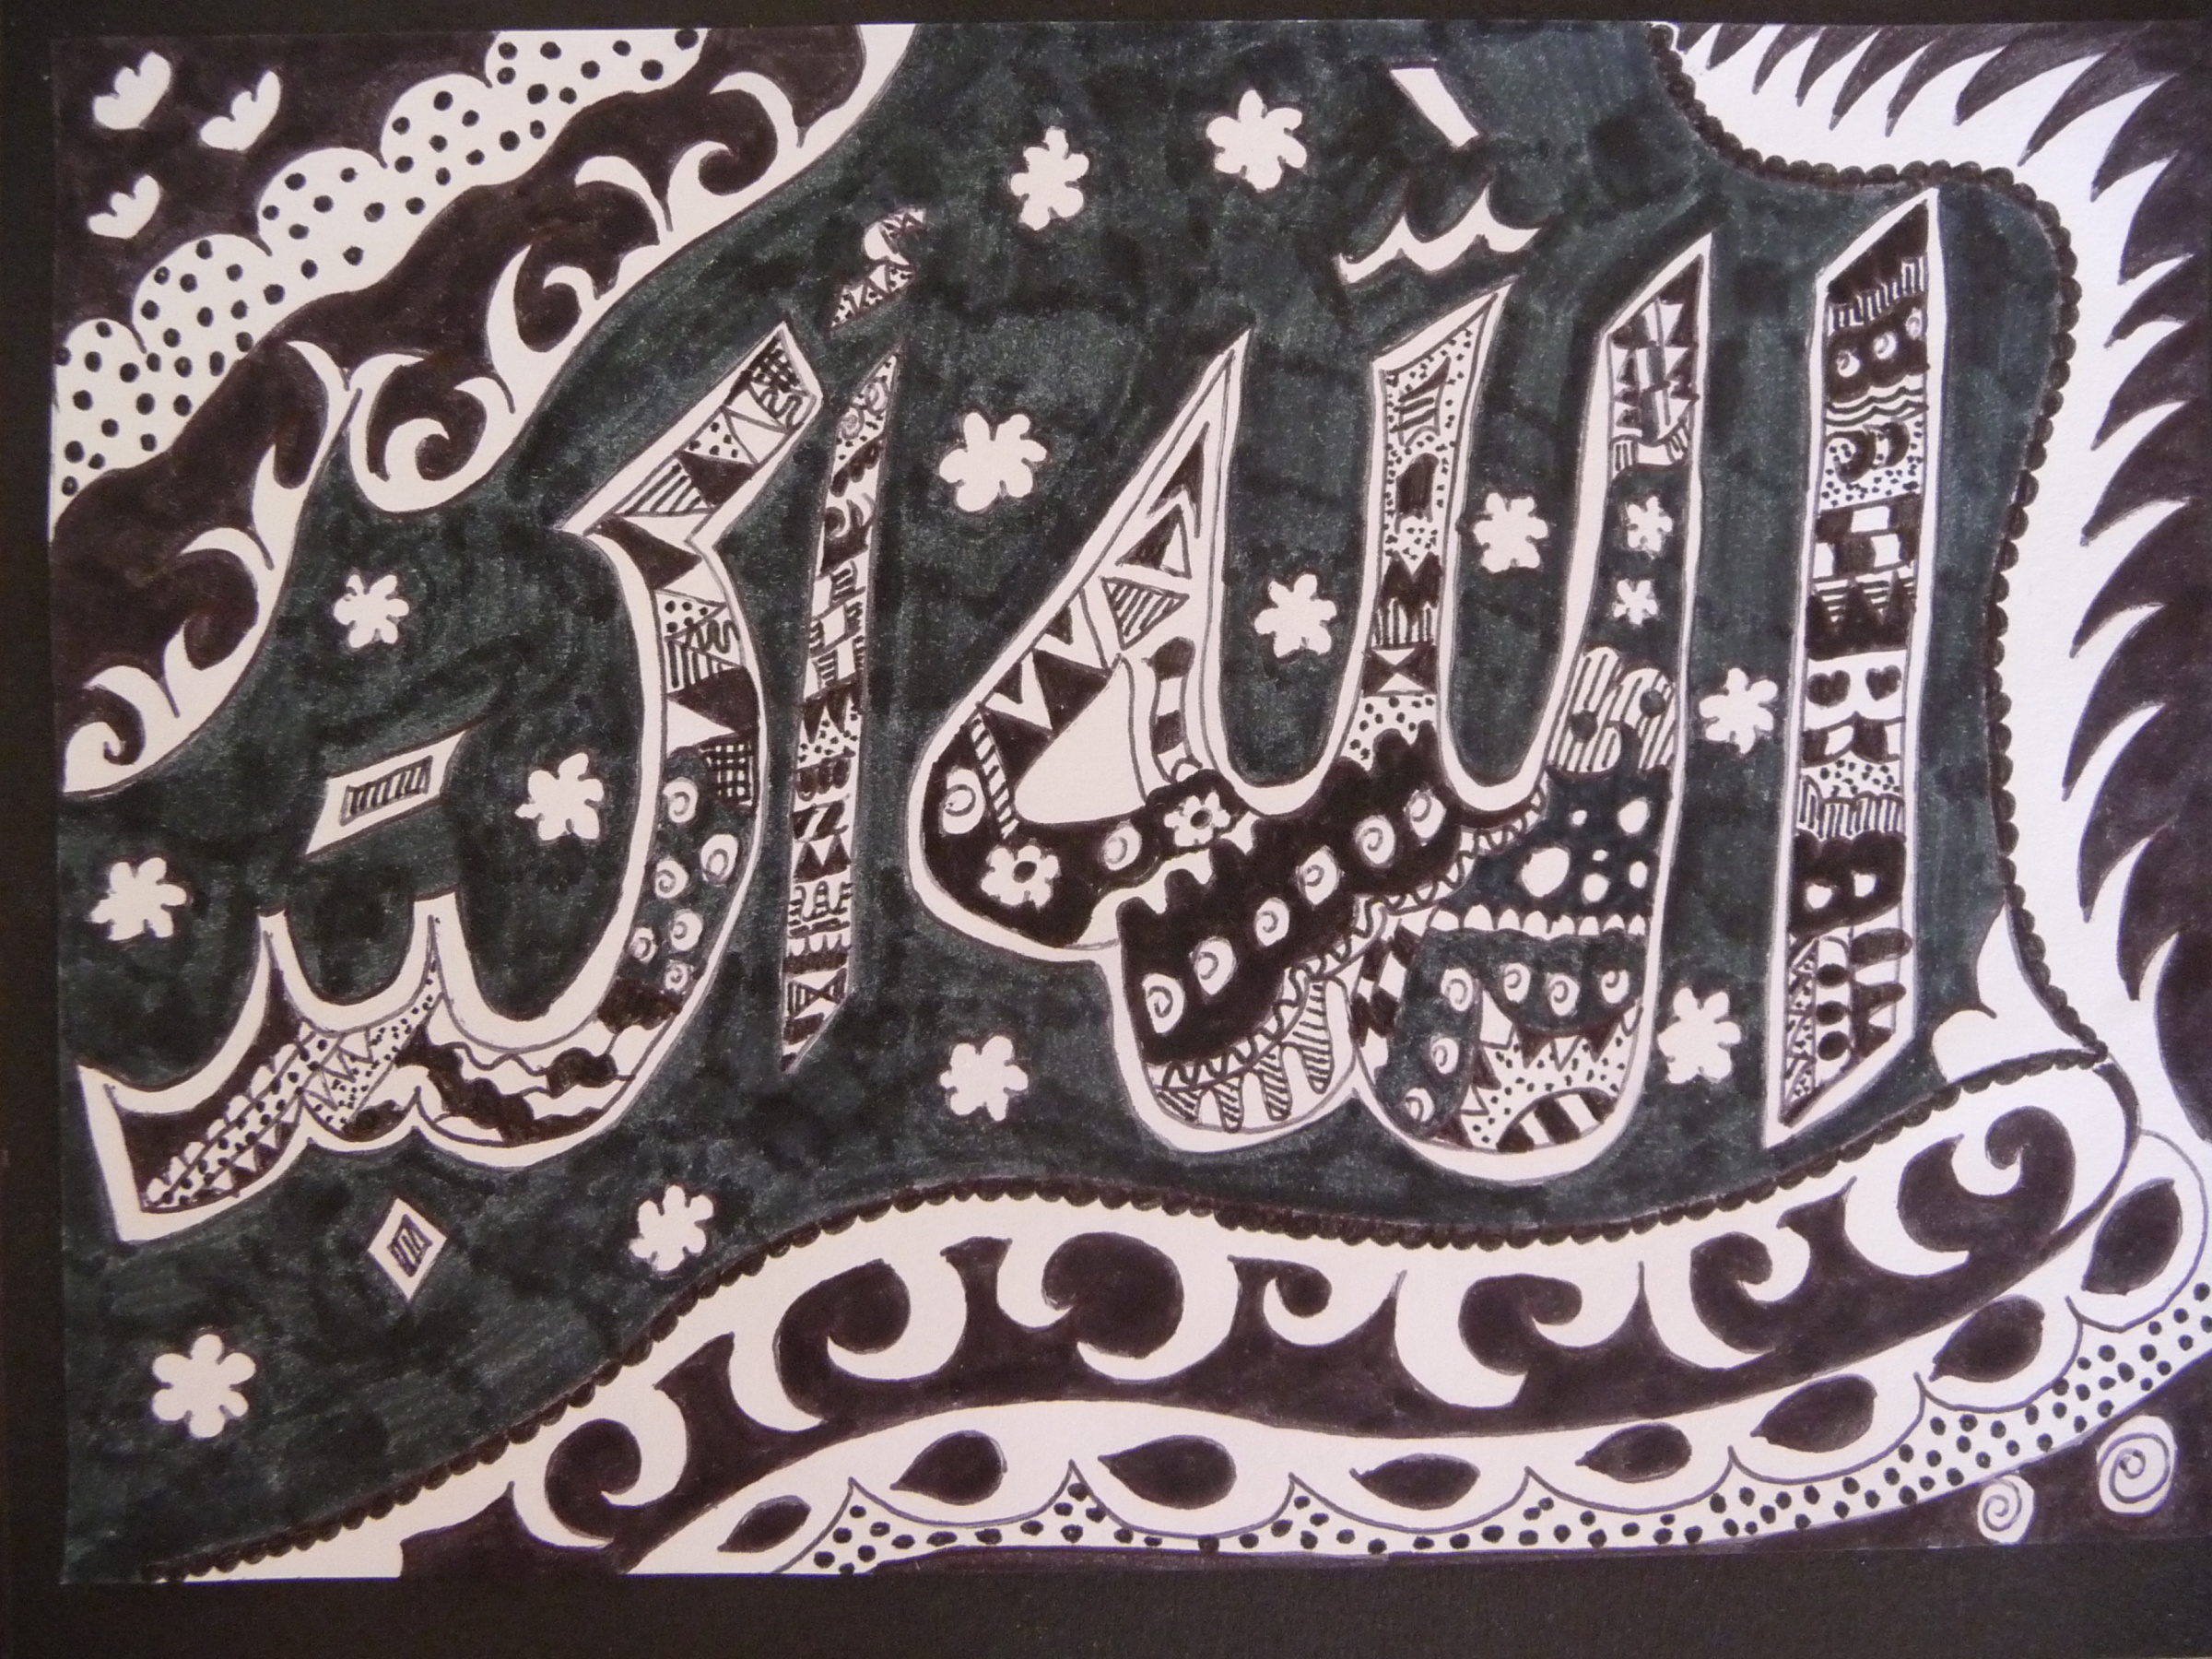 اللّٰه أَكْبَر